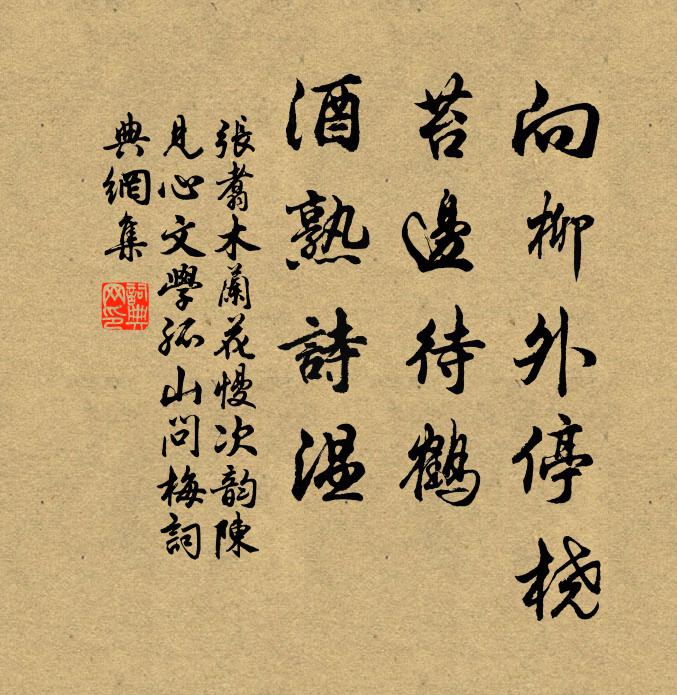 向柳外停桡
苔邊待鶴
酒熟詩温
張翥木蘭花慢次韵陳
見心文學孤山問梅詞
典網集
詞典網印